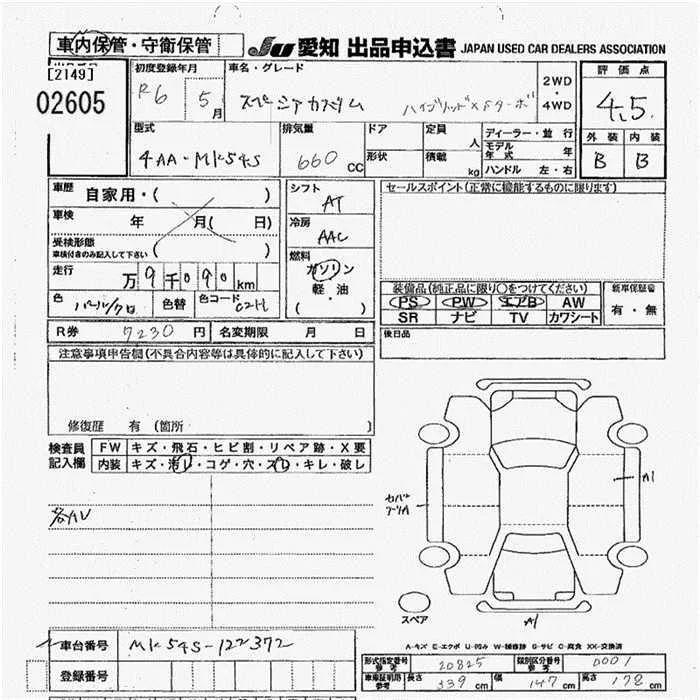 車内保管・守衛保管
JU 愛知 出品申込書 JAPAN USED CAR DEALERS ASSOCIATION
[2149]
02605
初度登録年月
R6 5月
車名・グレード
スペーシアカスタム ハイブリッドXSターボ
2WD
・
4WD
評価点
4.5
型式
4AA-MK54S
排気量
660 CC
ドア
形状
定員 人
積載 kg
ディーラー・並行
モデル年式 年
ハンドル 左・右
外装 内装
B B
車歴 自家用・( )
車検 年 月( 日)
受検形態
車検付きのみ記入して下さい ( )
走行 万 9 千 0 9 0 km
色 パール/クロ 色替 色コード C2H
シフト
AT
冷房
AAC
燃料
ガソリン
軽・油
( )
セールスポイント(正常に機能するものに限ります)
装備品(純正品に限り○をつけてください)
PS PW エアB AW
SR ナビ TV カワシート
新車保証書
有・無
R券 7230 円 名変期限 月 日
後日品
注意事項申告欄(不具合内容等は具体的に記入して下さい)
修復歴 有(箇所 )
検査員記入欄
FW キズ・飛石・ヒビ割・リペア跡・X要
内装 キズ・汚レ・コゲ・穴・スレ・キレ・破レ
A1
スペア
A1
A-キズ E-エクボ U-凹み W-補修跡 S-サビ C-腐食 XX-交換済
車台番号 MK54S-122372
登録番号
形式指定番号 参考 20825 類別区分番号 参考 0001
車庫証明用 参考 長さ 339 cm 幅 147 cm 高さ 178 cm